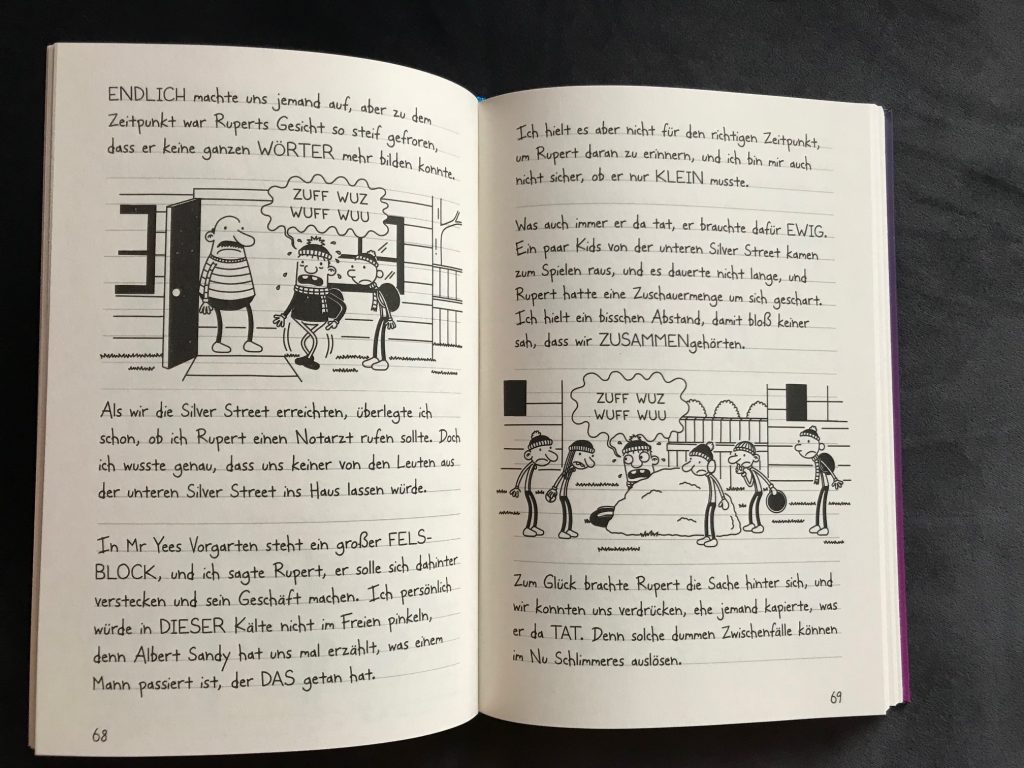 ENDLICH machte uns jemand auf, aber zu dem
Zeitpunkt war Ruperts Gesicht so steif gefroren,
dass er keine ganzen WÖRTER mehr bilden konnte.
ZUFF WUZ
WUFF WUU
Als wir die Silver Street erreichten, überlegte ich
schon, ob ich Rupert einen Notarzt rufen sollte. Doch
ich wusste genau, dass uns keiner von den Leuten aus
der unteren Silver Street ins Haus lassen würde.
In Mr Yees Vorgarten steht ein großer FELS-
BLOCK, und ich sagte Rupert, er solle sich dahinter
verstecken und sein Geschäft machen. Ich persönlich
würde in DIESER Kälte nicht im Freien pinkeln,
denn Albert Sandy hat uns mal erzählt, was einem
Mann passiert ist, der DAS getan hat.
68
Ich hielt es aber nicht für den richtigen Zeitpunkt,
um Rupert daran zu erinnern, und ich bin mir auch
nicht sicher, ob er nur KLEIN musste.
Was auch immer er da tat, er brauchte dafür EWIG.
Ein paar Kids von der unteren Silver Street kamen
zum Spielen raus, und es dauerte nicht lange, und
Rupert hatte eine Zuschauermenge um sich geschart.
Ich hielt ein bisschen Abstand, damit bloß keiner
sah, dass wir ZUSAMMENgehörten.
ZUFF WUZ
WUFF WUU
Zum Glück brachte Rupert die Sache hinter sich, und
wir konnten uns verdrücken, ehe jemand kapierte, was
er da TAT. Denn solche dummen Zwischenfälle können
im Nu Schlimmeres auslösen.
69